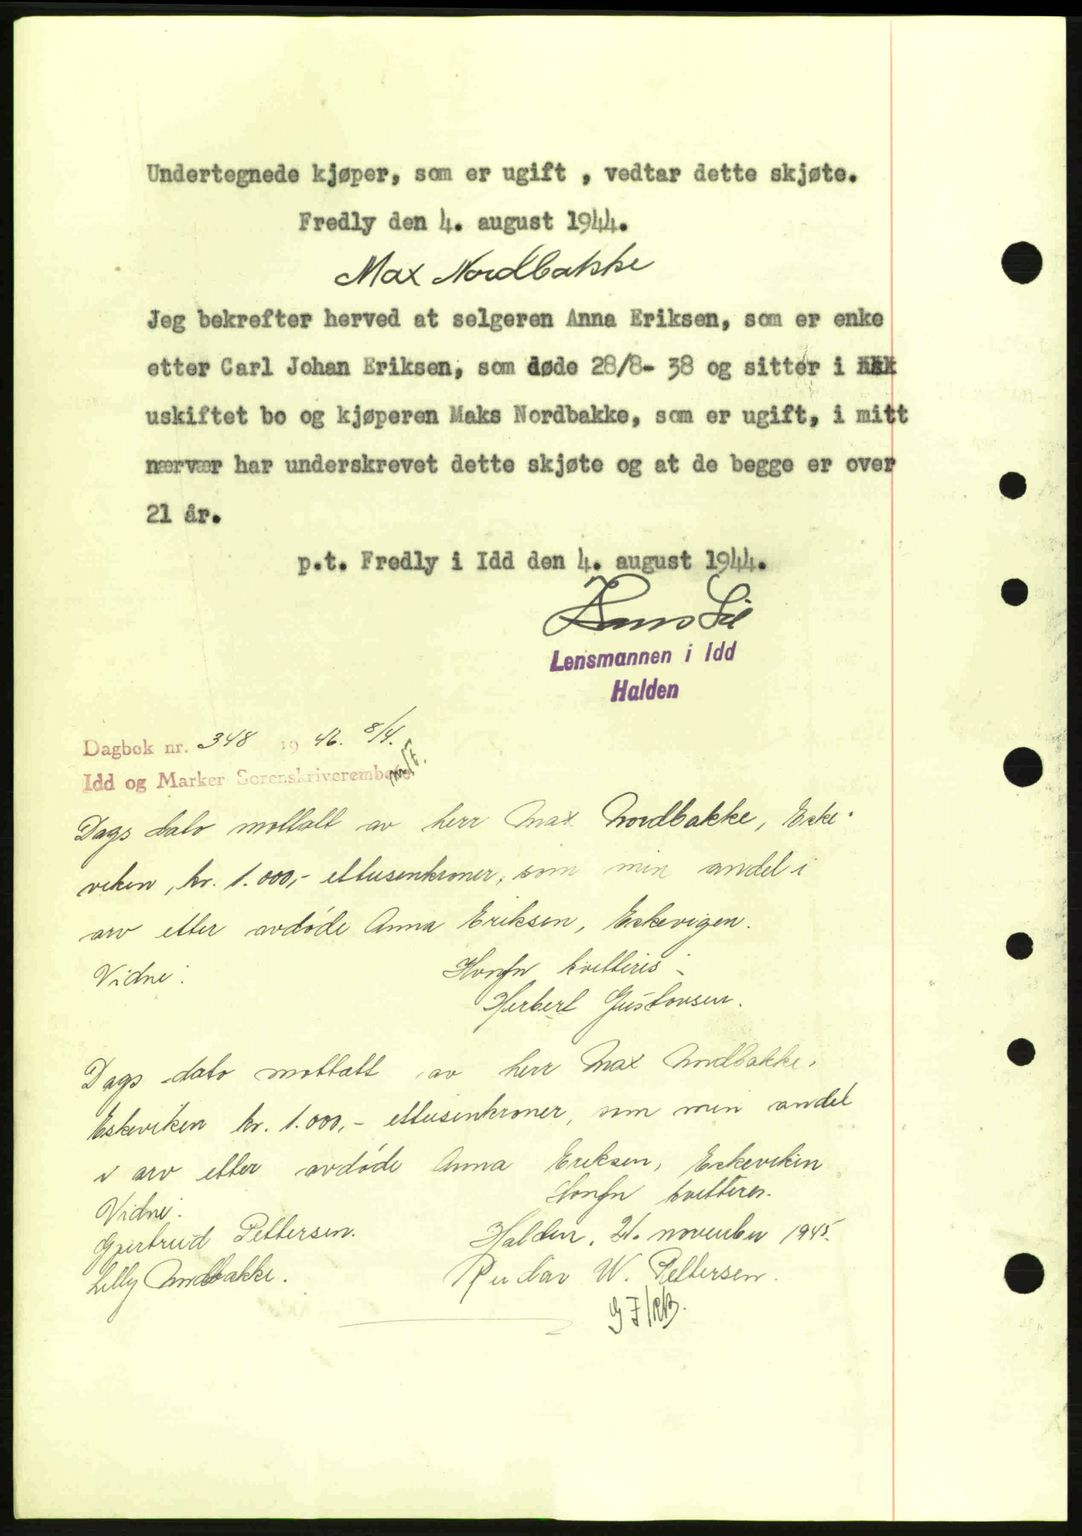 Undertegnede kjøper, som er ugift , vedtar dette skjøte.
Fredly den 4. august 1944.
Max Nordbakke
Jeg bekrefter herved at selgeren Anna Eriksen, som er enke
etter Carl Johan Eriksen, som døde 28/8- 38 og sitter i
uskiftet bo og kjøperen Maks Nordbakke, som er ugift, i mitt
nærvær har underskrevet dette skjøte og at de begge er over
21 år.
p.t. Fredly i Idd den 4. august 1944.
Hans Lie
Lensmannen i Idd
Halden
Dagbok nr. 348 1946. 8/4.
Idd og Marker Sorenskriverembete
Dags dato mottatt av herr Max Nordbakke, Eske-
viken, kr. 1.000,- ettusenkroner, som min andel i
arv etter avdøde Anna Eriksen, Eskevigen.
Vidne: kvitteres
Herbert Gustavsen.
Dags dato mottatt av herr Max Nordbakke,
Eskeviken kr. 1.000,- ettusenkroner, som min andel
i arv etter avdøde Anna Eriksen, Eskeviken
Vidne: kvitteres.
Gjertrud Pettersen. Halden, 21. november 1945.
Lilly Nordbakke. W. Pettersen.
GF/RB.